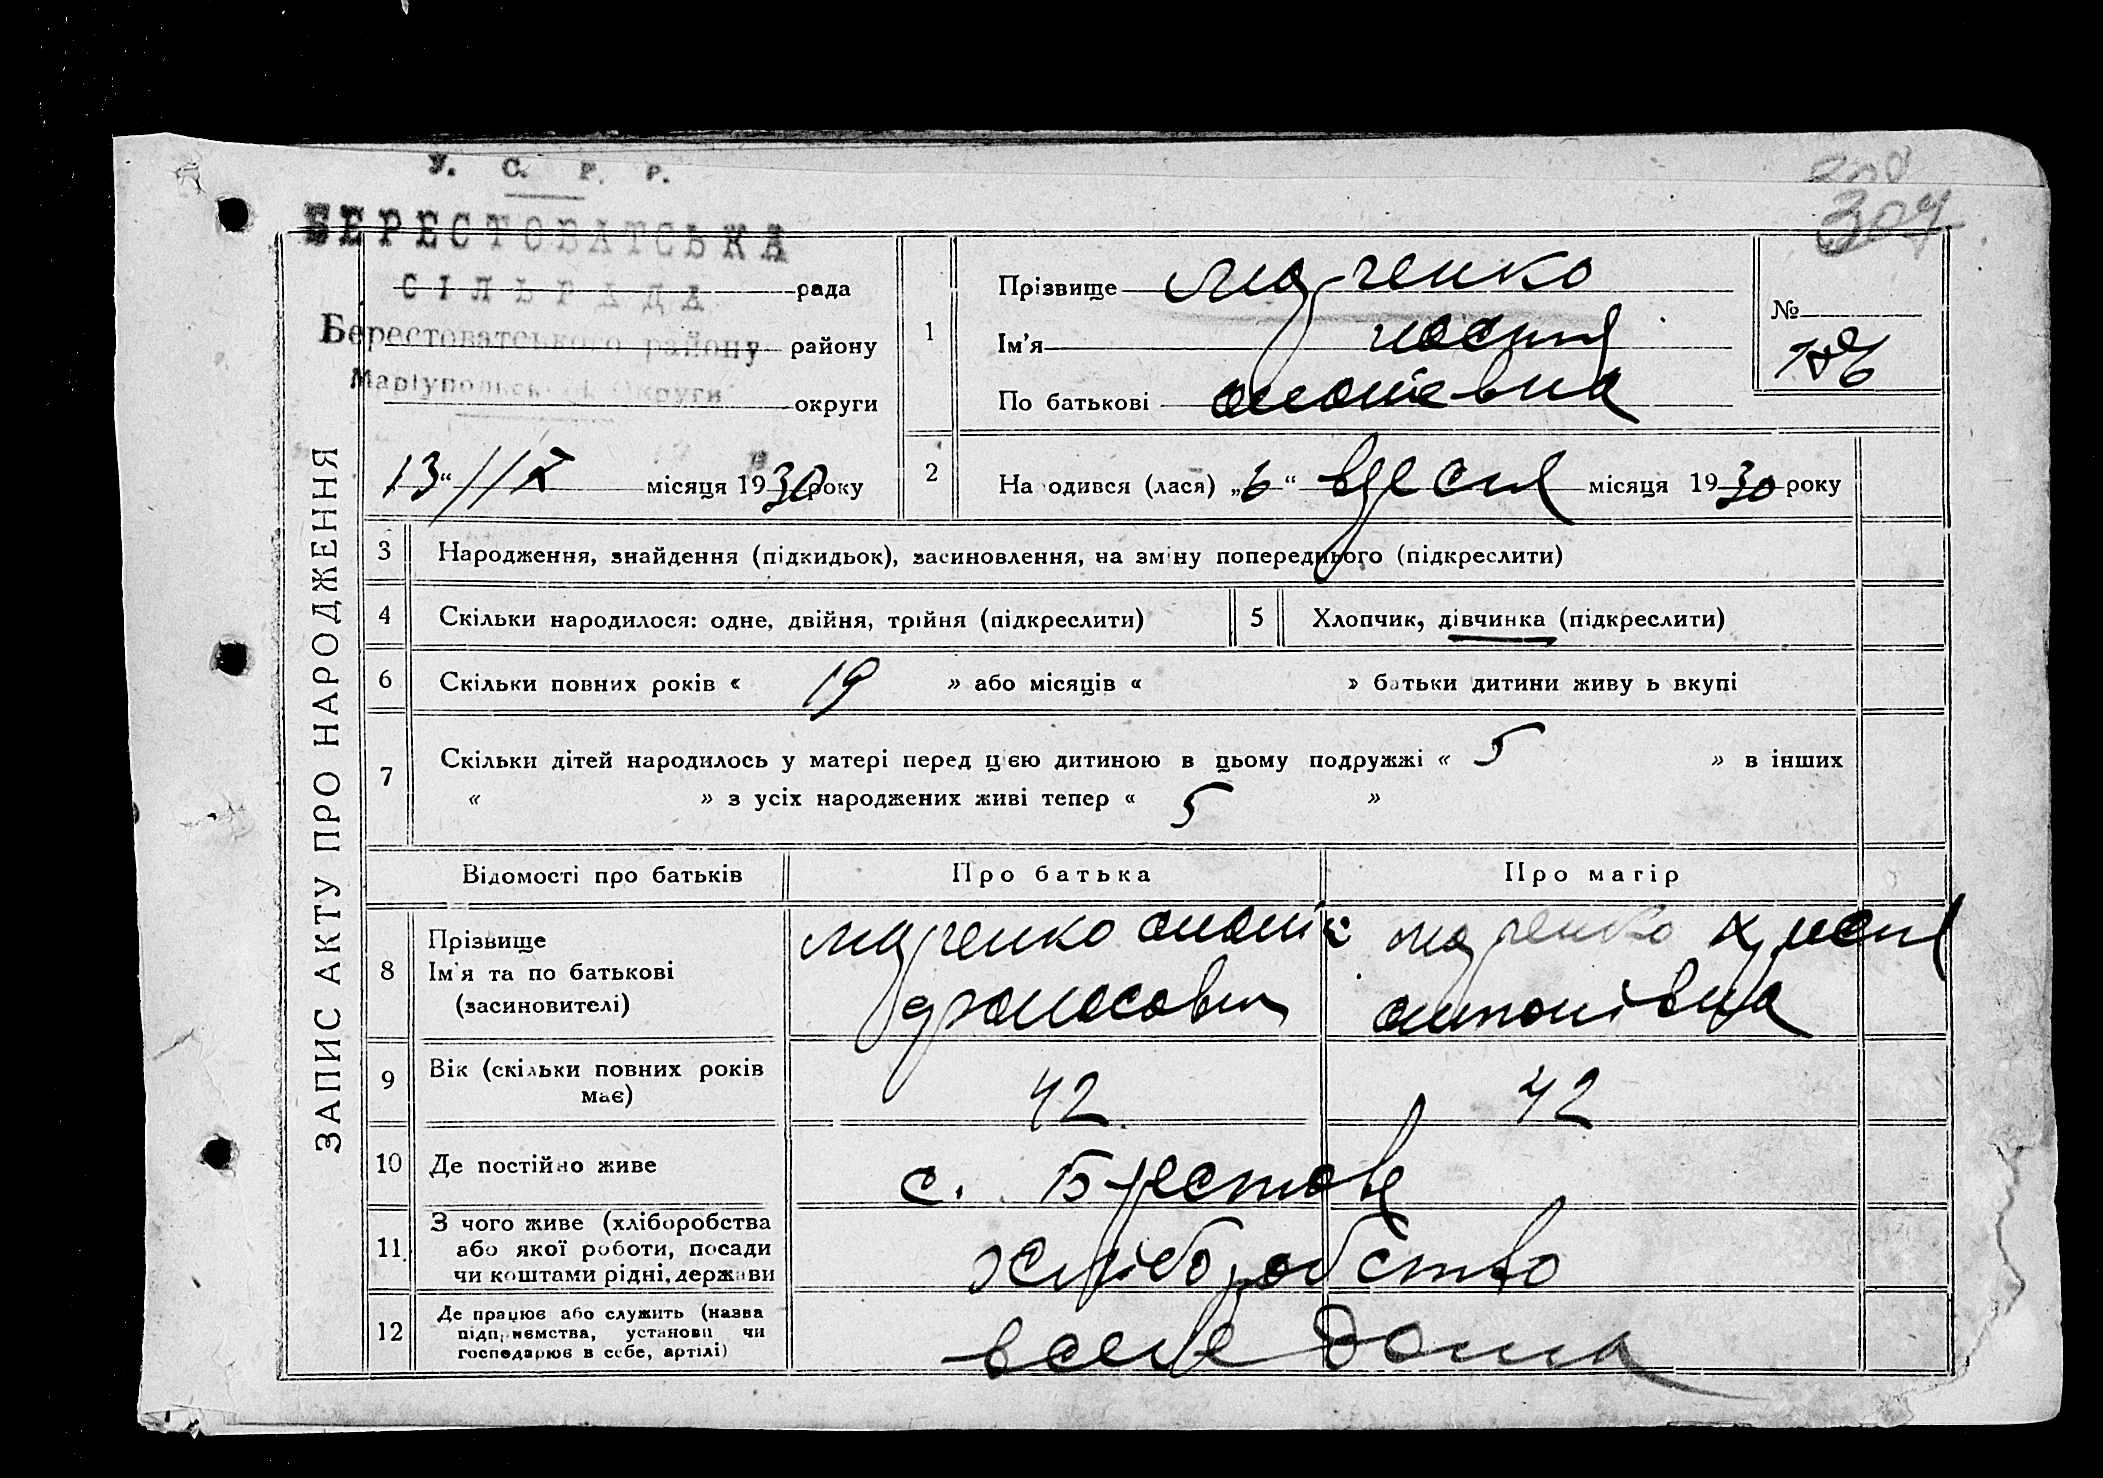 У. С. Р. Р.
307
БЕРЕСТОВАТСЬКА
СІЛЬРАДА рада
Берестоватського району району
Маріупольської Округи округи
13 " IX місяця 1930 року
ЗАПИС АКТУ ПРО НАРОДЖЕННЯ
1 Прізвище Марченко
Ім'я
По батькові
№
2 На одився (лася) „6“ вересня місяця 1930 року
3 Народження, знайдення (підкидьок), засиновлення, на зміну попереднього (підкреслити)
4 Скільки народилося: одне, двійня, трійня (підкреслити) 5 Хлопчик, дівчинка (підкреслити)
6 Скільки повних років « 19 » або місяців « » батьки дитини живу ь вкупі
7 Скільки дітей народилось у матері перед цією дитиною в цьому подружжі « 5 » в інших
« » з усіх народжених живі тепер « 5 »
Відомості про батьків Про батька Про матір
8 Прізвище
Ім'я та по батькові
(засиновителі)
Марченко
Марченко Христя
Антонівна
9 Вік (скільки повних років
має)
42 42
10 Де постійно живе с. Берестове
11 З чого живе (хліборобства
або якої роботи, посади
чи коштами рідні, держави
хліборобство
12 Де працює або служить (назва
підприємства, установи чи
господарює в себе, артілі)
в себе дома